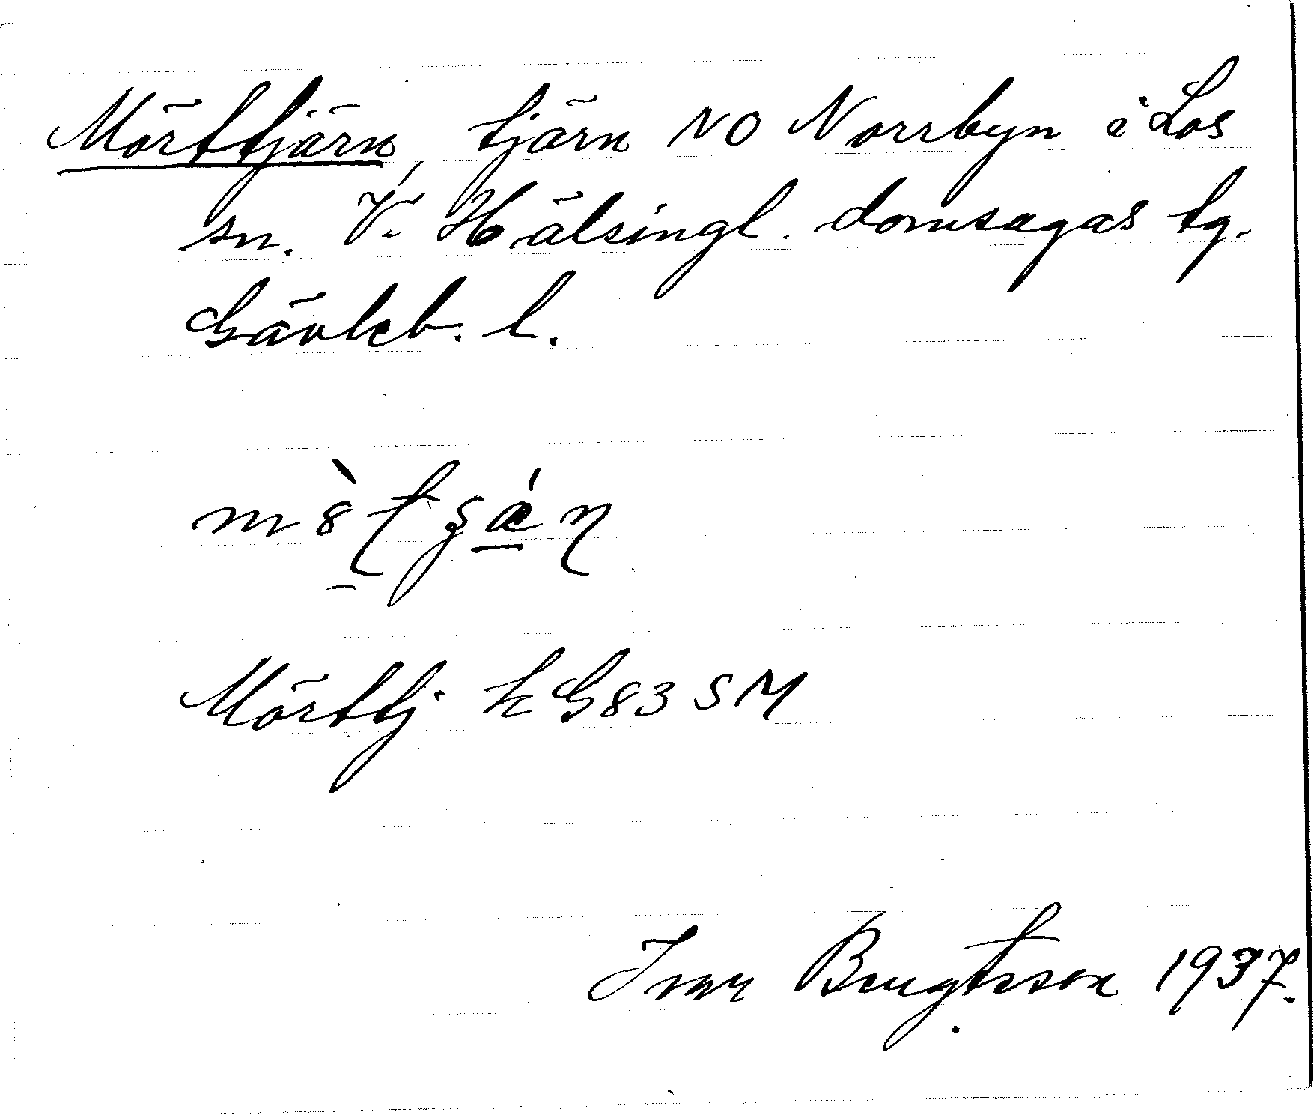 Mörttjärn, tjärn NO Norrbyn i Los
sn. V. Hälsingl. domsagas tg.
Gävleb. l.
Mörttj kG83SM
Ivar Bengtsson 1937.